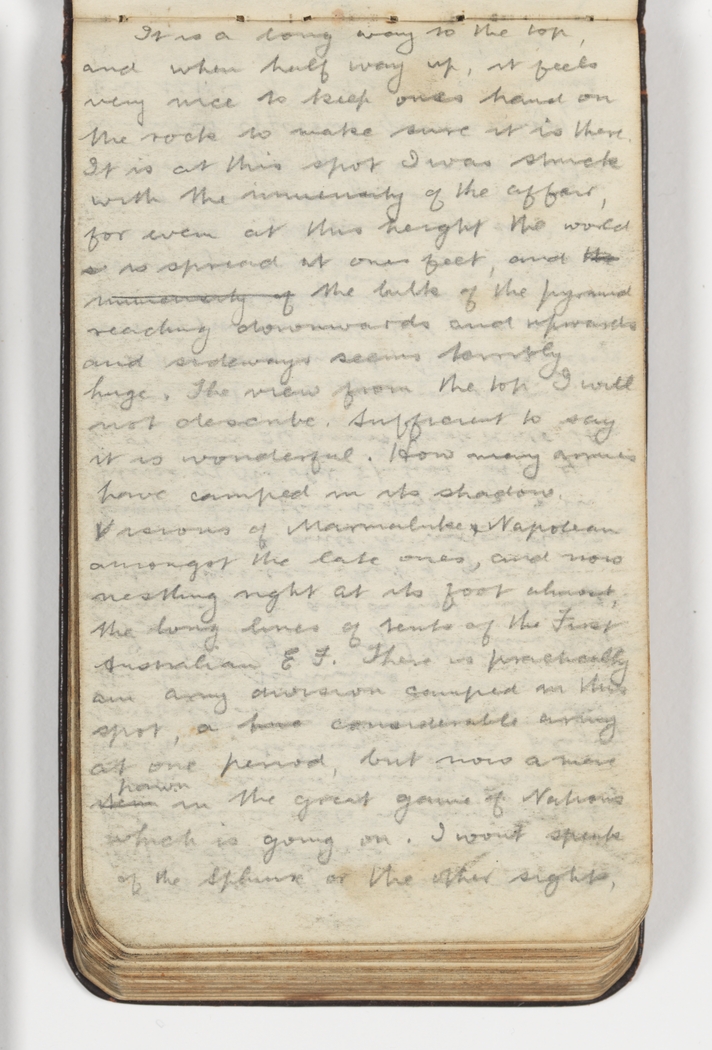 It is a long way to the top,
and when half way up, it feels
very nice to keep ones hand on
the rock to make sure it is there.
It is at this spot I was struck
with the immensity of the affair,
for even at this height the world
is spread at ones feet, and the
immensity of the bulk of the pyramid
reaching downwards and upwards
and sideways seems terribly
huge. The view from the top I will
not describe. Sufficient to say
it is wonderful. How many armies
have camped in its shadow.
Visions of Marmaluke & Napolean
amongst the late ones, and now
nestling right at its foot almost,
the long lines of tents of the First
Australian E F. There is practically
an army division camped in this
spot, a considerable army
at one period, but now a mere
pawn
item in the great game of Nations
which is going on. I wont speak
of the Sphinx or the other sights,